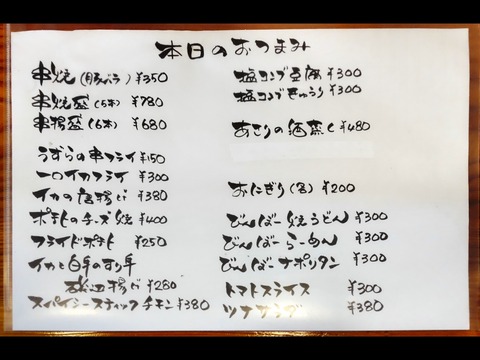 本日のおつまみ
串焼(豚バラ)¥350
串焼盛(5本)¥780
串揚盛(6本)¥680
うずらの串フライ¥150
一口イカフライ¥300
イカの唐揚げ¥380
ポテトのチーズ焼¥400
フライドポテト¥250
イカと
磯辺揚げ¥280
スパイシースティックチキン¥380
塩コンブ豆腐¥300
塩コンブきゅうり¥300
あさりの酒蒸し¥480
おにぎり(各)¥200
びんぼー焼うどん¥300
びんぼーらーめん¥300
びんぼーナポリタン¥300
トマトスライス¥300
ツナサラダ¥380